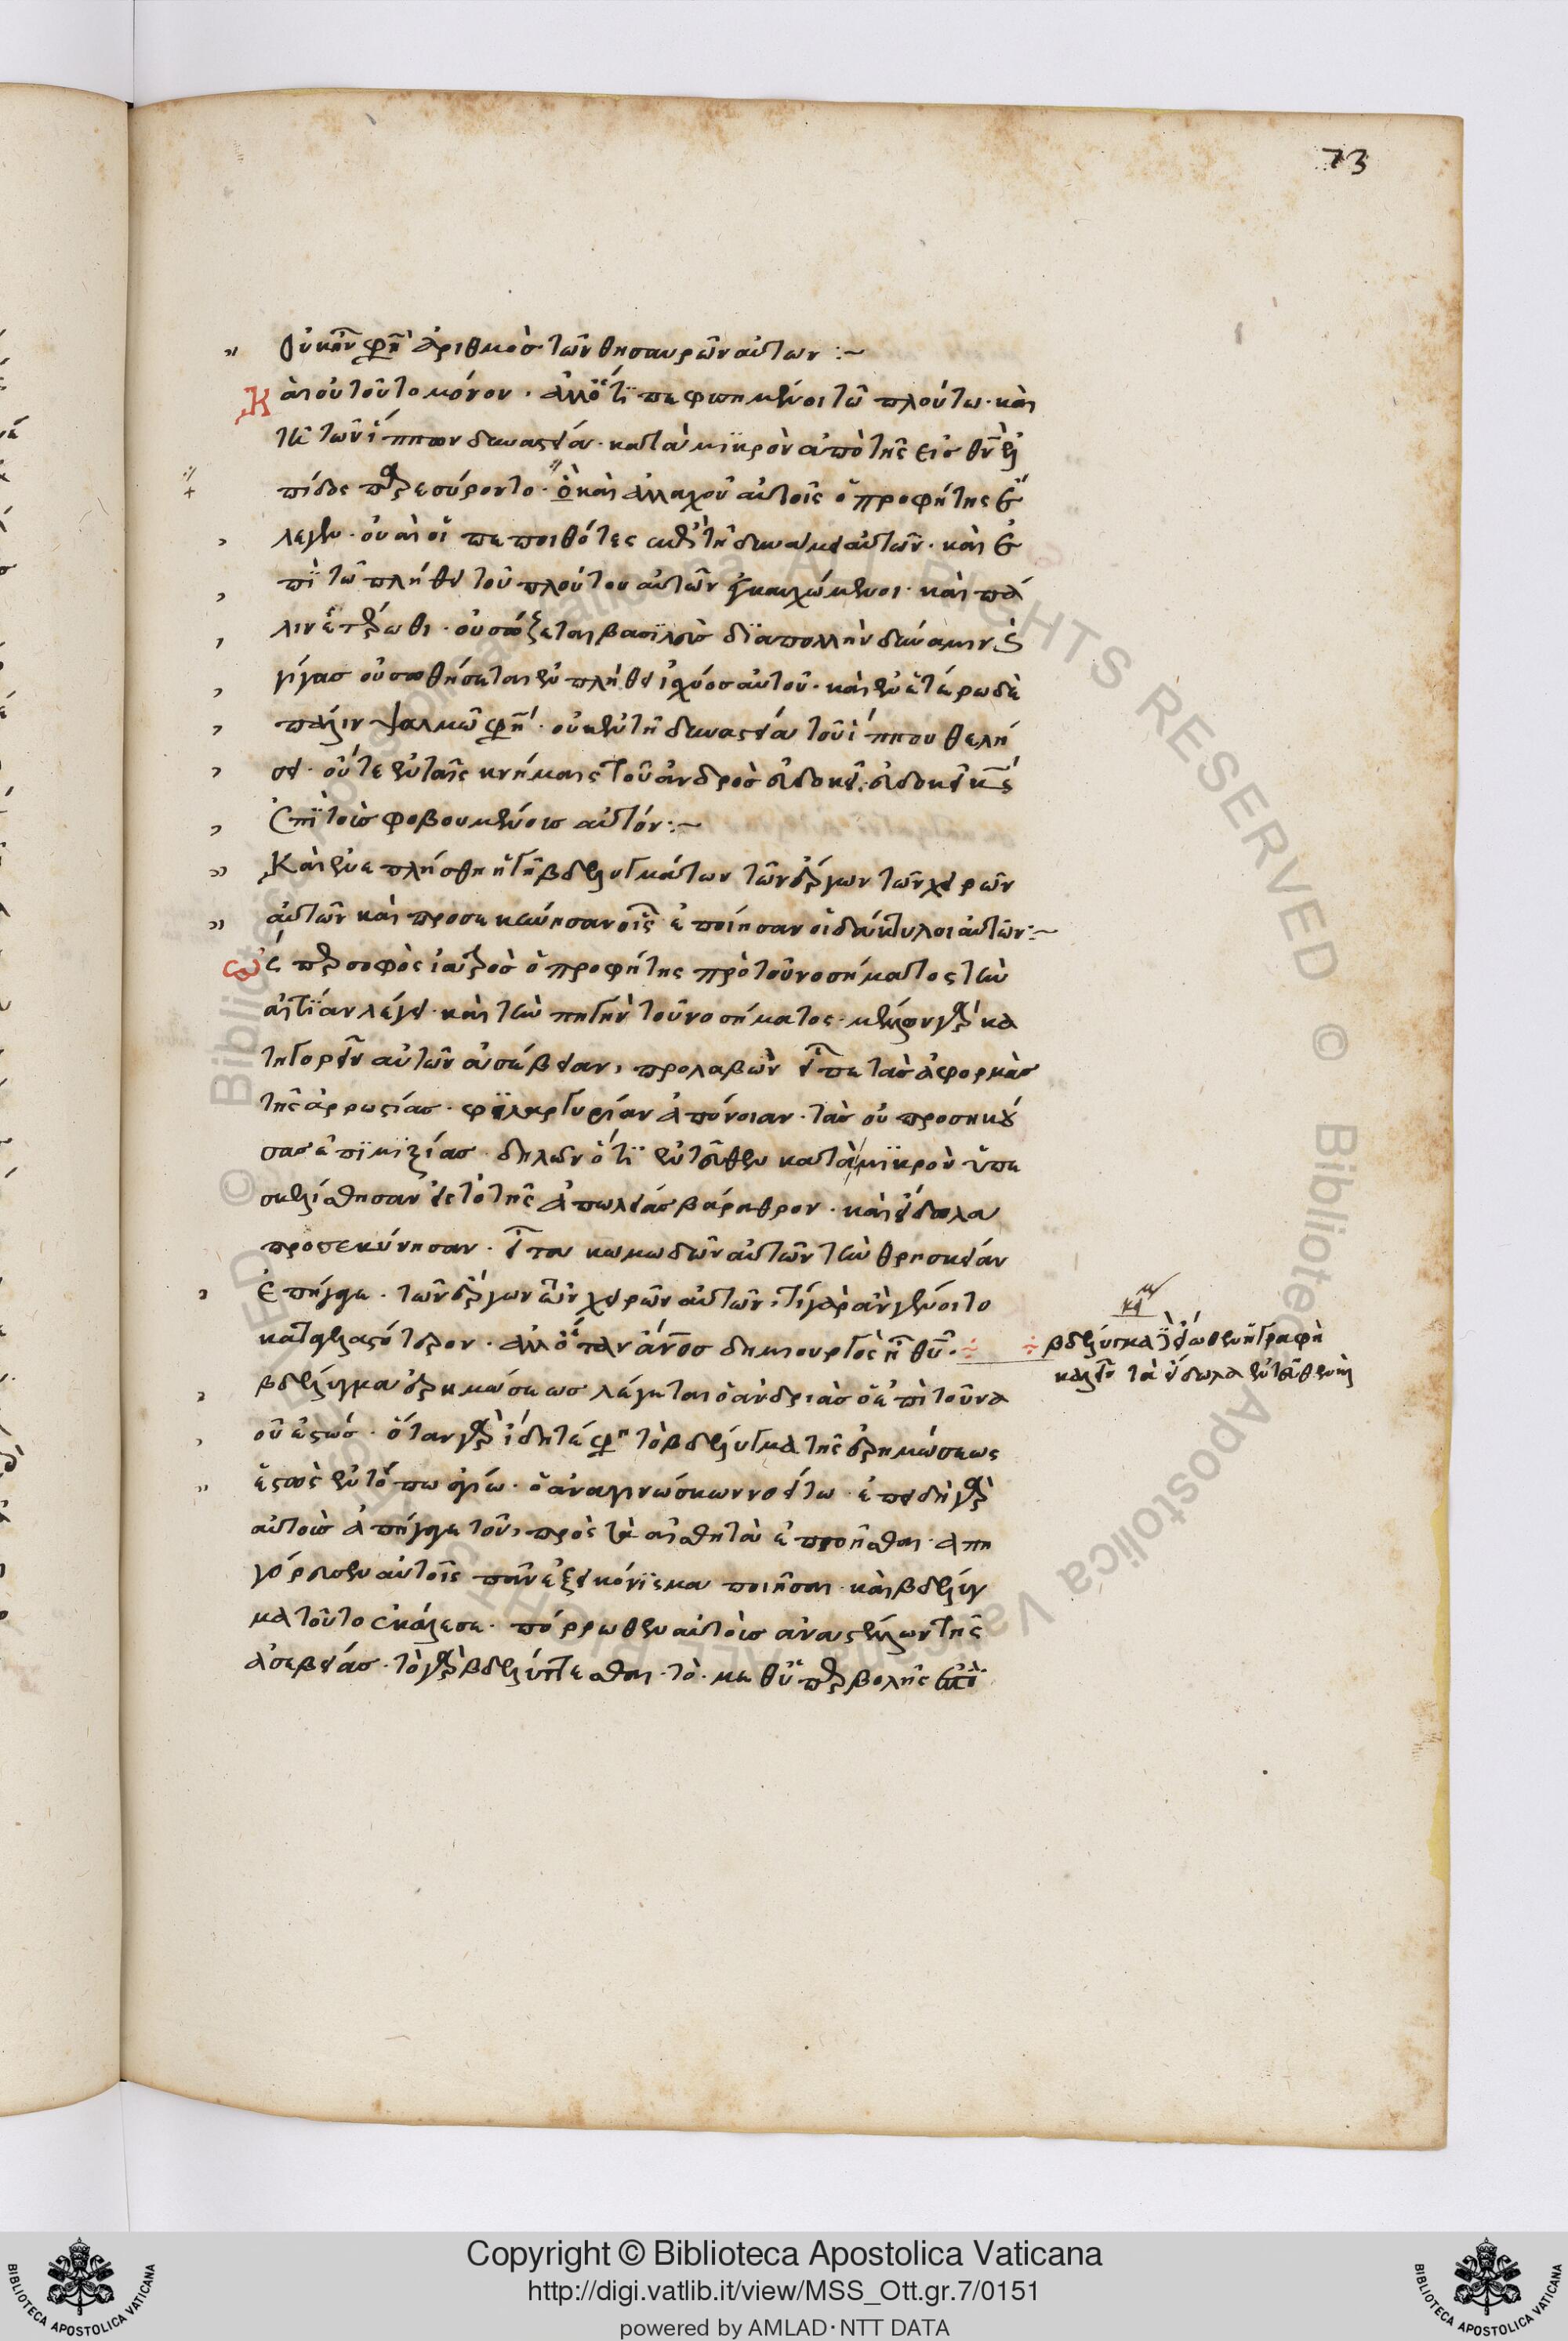 73
Οὐκ ἦν φησὶν ἀριθμὸς τῶν θησαυρῶν αὐτων :~
Καὶ οὐ τοῦτο μόνον · ἀλλ' ὅτι πεφυσημένοι τῶ πλούτω · καὶ
τῆ τῶν ἵππων δυναστεία · κατὰ μικρὸν ἀπὸ τῆς εἰς θν ἐλ
πίδος παρεσύροντο · ὃ καὶ ἀλλαχοῦ αὐτοῖς ὁ προφήτης ἔ
λεγεν · οὐαὶ οἱ πεποιθότες ἐπὶ τῆ δυνάμει αὐτῶν · καὶ ἐ
πὶ τῶ πλήθει τοῦ πλούτου αὐτῶν ἐγκαυχώμενοι · καὶ πά
λιν ἑτέρωθι · οὐ σώζεται βασιλεὺς διὰ πολλὴν δύναμιν καὶ
γίγας οὐ σωθήσεται ἐν πλήθει ἰσχύος αὐτοῦ · καὶ ἐν ἑτέρω δὲ
πάλιν ψαλμῶ φησί · οὐκ ἐν τῆ δυναστεία τοῦ ἵππου θελή
σει · οὔτε ἐν ταῖς κνήμαις τοῦ ἀνδρὸς εὐδοκεῖ · εὐδοκεῖ κς
ἐπὶ τοῖς φοβουμένοις αὐτόν :~
Καὶ ἐνεπλήσθη ἡ γῆ βδελυγμάτων τῶν ἔργων τῶν χειρῶν
αὐτῶν καὶ προσεκύνησαν οἷς ἐποίησαν οἱ δάκτυλοι αὐτῶν :~
Ὥσπερ σοφὸς ἰατρὸς ὁ προφήτης πρὸ τοῦ νοσήματος τὴν
αἰτίαν λέγει · καὶ τὴν πηγὴν τοῦ νοσήματος · μέλλων γὰρ κα
τηγορεῖν αὐτῶν ἀσέβειαν, προλαβὼν εἶπε τὰς ἀφορμὰς
τῆς ἀρρωστίας · φιλαργυρίαν ἀπόνοιαν · τὰς οὐ προσηκού
σας ἐπιμιξίας · δηλῶν ὅτι ἐντεῦθεν κατὰ μικρὸν ὑπε
σκελίσθησαν εἰς τὸ τῆς ἀπωλείας βάραθρον · καὶ εἴδωλα
προσεκύνησαν · εἶτα κωμωδῶν αὐτῶν τὴν θρησκείαν
ἐπήγαγε · τῶν ἔργων τῶν χειρῶν αὐτῶν · τί γὰρ ἂν γένοιτο
καταγελαστότερον · ἀλλ' ὅταν ἄνος δημιουργὸς ἦ θῦ ·
βδέλυγμα ἐρημώσεως λέγεται ὁ ἀνδριὰς ὁ ἐπὶ τοῦ να
οῦ ἑστώς · ὅταν γὰρ ἴδητέ φησι τὸ βδέλυγμα τῆς ἐρημώσεως
ἑστὼς ἐν τόπω ἁγίω · ὁ ἀναγινώσκων νοείτω · ἐπειδὴ γὰρ
αὐτοὺς ἀπήγαγε τοῦ, πρὸς τὰ αἰσθητὰ ἐπτοῆσθαι · ἀπη
γόρευσεν αὐτοῖς πᾶν ἐξεικόνισμα ποιῆσαι · καὶ βδέλυγ
μα τοῦτο ἐκάλεσε · πόρρωθεν αὐτοὺς ἀναστέλλων τῆς
ἀσεβείας · τὸ γὰρ βδελύττεσθαι · τὸ · μεθ' ὑπερβολῆς
βδέλυγμα εἴωθεν ἡ γραφὴ
καλεῖν τὰ εἴδωλα ἐντεῦθεν
Copyright © Biblioteca Apostolica Vaticana
http://digi.vatlib.it/view/MSS_Ott.gr.7/0151
powered by AMLAD·NTT DATA
BIBLIOTECA APOSTOLICA VATICANA
BIBLIOTECA APOSTOLICA VATICANA